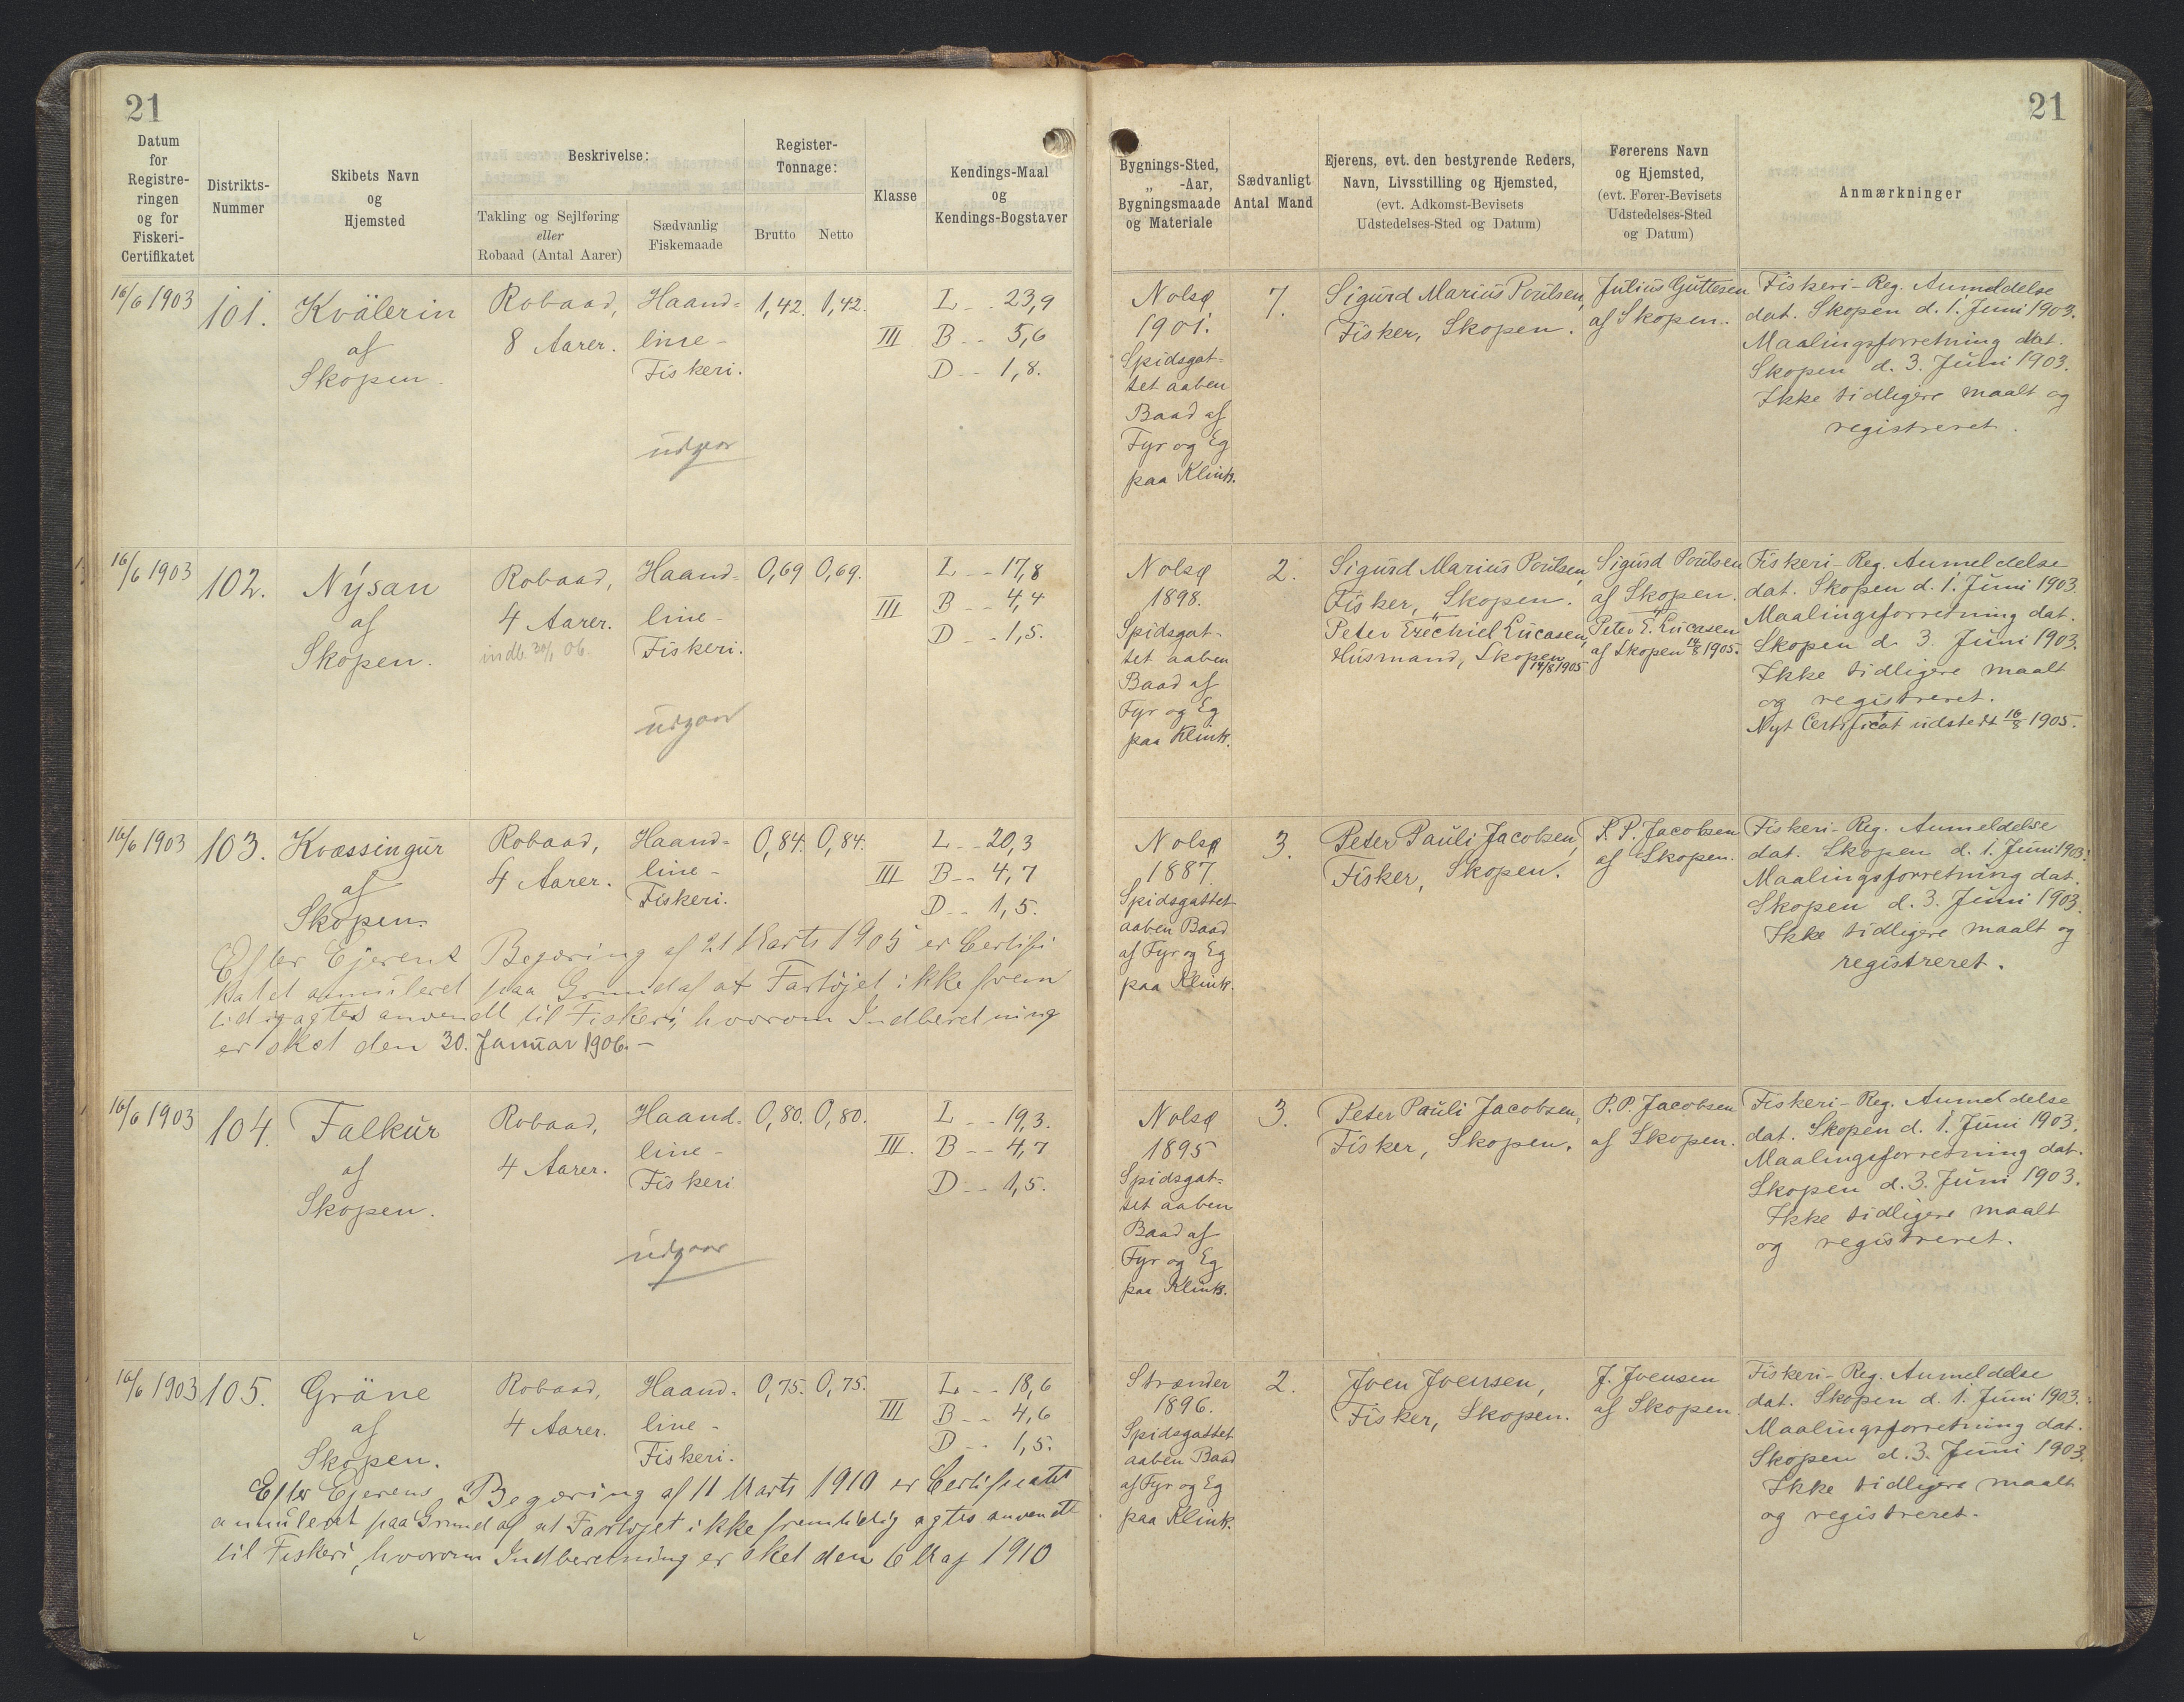 21
21
Datum for Registreringen og for Fiskeri-Certifikatet
Distrikts-Nummer
Skibets Navn og Hjemsted
Beskrivelse:
Takling og Sejlføring eller Robaad (Antal Aarer)
Sædvanlig Fiskemaade
Register-Tonnage:
Brutto
Netto
Klasse
Kendings-Maal og Kendings-Bogstaver
Bygnings-Sted, „ -Aar, Bygningsmaade og Materiale
Sædvanligt Antal Mand
Ejerens, evt. den bestyrende Reders, Navn, Livsstilling og Hjemsted, (evt. Adkomst-Bevisets Udstedelses-Sted og Datum)
Førerens Navn og Hjemsted, (evt. Fører-Bevisets Udstedelses-Sted og Datum)
Anmærkninger
16/6 1903
101.
Kvälerin
af
Skopen.
Robaad,
8 Aarer.
Haand-
line-
Fiskeri.
udgaar
1,42. 1,42.
III
L - - 23,9
B - - 5,6
D - - 1,8.
Nolsø
1901.
Spidsgat-
tet aaben
Baad af
Fyr og Eg
paa Klink.
7.
Sigurd Marius Poulsen,
Fisker, Skopen.
Julius Guttesen
af Skopen.
Fiskeri-Reg. Anmeldelse
dat. Skopen d. 1. Juni 1903.
Maalingsforretning dat.
Skopen d. 3. Juni 1903.
Ikke tidligere maalt og
registreret.
16/6 1903
102.
Nýsan
af
Skopen.
Robaad,
4 Aarer.
indb. 30/1 06.
Haand-
line-
Fiskeri.
udgaar
0,69 0,69.
III
L - - 17,8
B - - 4,4
D - - 1,5.
Nolsø
1898.
Spidsgat-
tet aaben
Baad af
Fyr og Eg
paa Klink.
2.
Sigurd Marius Poulsen,
Fisker, Skopen.
Peter Ezechiel Lucasen,
Husmand, Skopen
14/8 1905
Sigurd Poulsen
af Skopen.
Peter E. Lucasen
af Skopen 14/8 1905.
Fiskeri-Reg. Anmeldelse
dat. Skopen d. 1. Juni 1903.
Maalingsforretning dat.
Skopen d. 3. Juni 1903.
Ikke tidligere maalt
og registreret.
Nyt Certificat udstedt 16/8 1905.
16/6 1903
103.
Kvæssingur
af
Skopen.
Robaad,
4 Aarer.
Haand-
line-
Fiskeri.
0,84. 0,84.
III
L - - 20,3
B - - 4,7
D - - 1,5.
Efter Ejerens Begæring af 21 Marts 1905 er Certifi
katet annuleret paa Grund af at Fartöjet ikke frem
tidig agtes anvendt til Fiskeri, hvorom Indberetning
er sket den 30. Januar 1906.-
Nolsø
1887.
Spidsgattet
aaben Baad
af Fyr og Eg
paa Klink.
3.
Peter Pauli Jacobsen,
Fisker, Skopen.
P. P. Jacobsen
af Skopen.
Fiskeri-Reg. Anmeldelse
dat. Skopen d. 1. Juni 1903.
Maalingsforretning dat.
Skopen d. 3. Juni 1903.
Ikke tidligere maalt og
registreret.
16/6 1903
104.
Falkur
af
Skopen.
Robaad,
4 Aarer.
Haand-
line-
Fiskeri
udgaar
0,80. 0,80.
III.
L - - 19,3.
B - - 4,7
D - - 1,5.
Nolsø
1895
Spidsgat-
tet aaben
Baad af
Fyr og Eg
paa Klink.
3.
Peter Pauli Jacobsen,
Fisker, Skopen.
P. P. Jacobsen
af Skopen.
Fiskeri-Reg. Anmeldelse
dat. Skopen d. 1. Juni 1903.
Maalingsforretning dat.
Skopen d. 3. Juni 1903.
Ikke tidligere maalt
og registreret.
16/6 1903
105.
Gräne
af
Skopen.
Robaad,
4 Aarer.
Haand-
line-
Fiskeri.
0,75. 0,75.
III
L - - 18,6
B - - 4,6
D - - 1,5.
Efter Ejerens Begæring af 11 Marts 1910 er Certificatet
annuleret paa Grund af at Fartøjet ikke fremtidig agtes anvendt
til Fiskeri, hvorom Indberetning er sket den 6 Maj 1910
Strænder
1896.
Spidsgattet
aaben Baad
af Fyr og Eg
paa Klink.
2.
Joen Joensen,
Fisker, Skopen.
J. Joensen
af Skopen.
Fiskeri-Reg. Anmeldelse
dat. Skopen d. 1. Juni 1903.
Maalingsforretning dat.
Skopen d. 3. Juni 1903.
Ikke tidligere maalt
og registreret.